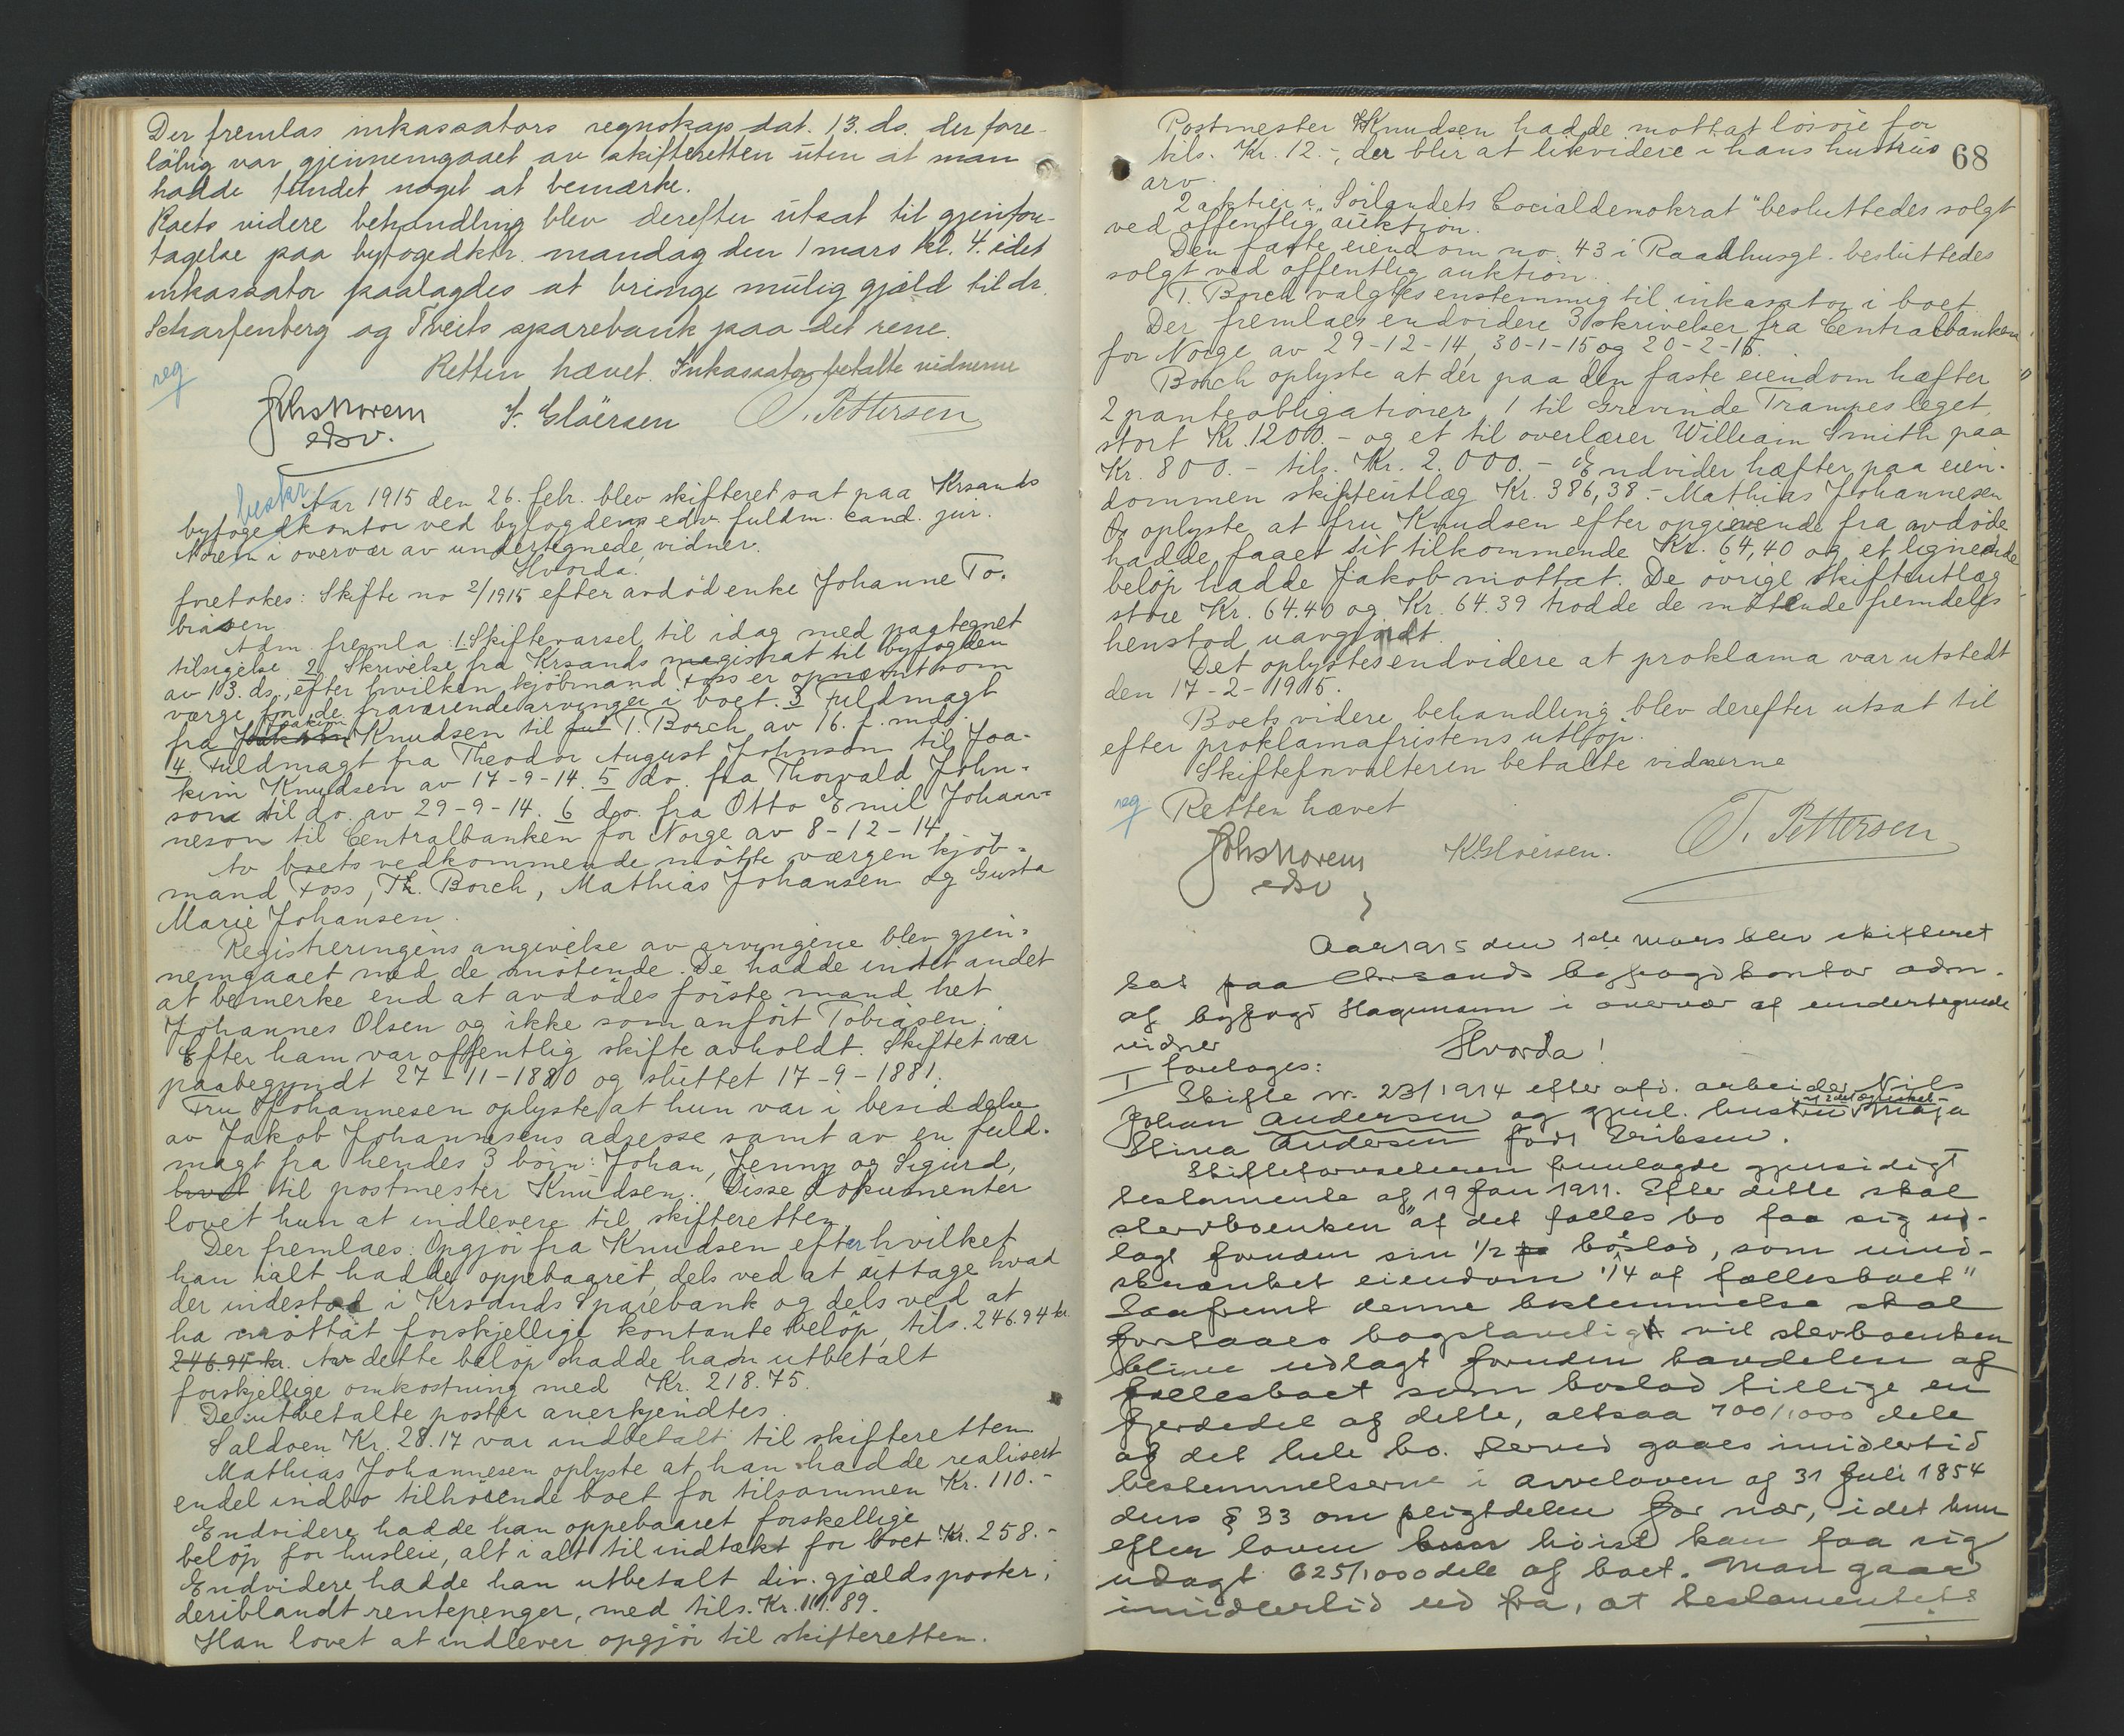 Der fremlas inkassators regnskap dat. 13. ds. der fore-
løbig var gjennemgaaet av skifteretten uten at man
hadde fundet noget at bemærke.
Boets videre behandling blev derefter utsat til gjenfore-
tagelse paa byfogedktr. mandag den 1 mars kl. 4. idet
inkassator paalagdes at bringe mulig gjæld til dr.
Scharfenberg og Tveits sparebank paa det rene.
Retten hævet. Inkassator betalte vidnerne
reg
Johs Norem
edsv.
F. Gløersen
T. Pettersen
beskr
Aar 1915 den 26. febr. blev skifteret sat paa Krsands
byfogedkontor ved byfogdens edsv. fuldm. cand. jur.
Norem i overvær av undertegnede vidner.
Hvorda!
foretokes: Skifte no 2/1915 efter avdød enke Johanne To-
biasen
Adm. fremla 1 Skiftevarsel til idag med paategnet
tilsigelse 2 Skrivelse fra Krsands magistrat til byfogden
av 13. ds., efter hvilken kjøbmand Foss er opnævnt som
værge for de fraværende arvinger i boet. 3 Fuldmagt
fra Joakim Knudsen til T. Borch av 16. f. mds.
4 Fuldmagt fra Theodor August Johnson til Joa-
kim Knudsen av 17-9-14. 5 do. fra Thorvald John-
son til do. av 29-9-14. 6 do. fra Otto Emil Johan-
neson til Centralbanken for Norge av 8-12-14
Av boets vedkommende møtte værgen kjøb-
mand Foss, Th. Borch, Mathias Johansen og Gusta
Marie Johansen.
Registreringens angivelse av arvingene blev gjen-
nemgaaet med de møtende. De hadde intet andet
at bemerke end at avdødes første mand het
Johannes Olsen og ikke som anført Tobiasen.
Efter ham var offentlig skifte avholdt. Skiftet var
paabegyndt 27-11-1880 og sluttet 17-9-1881.
Fru Johannesen oplyste at hun var i besiddelse
av Jakob Johannesens adresse samt av en fuld-
magt fra hendes 3 børn: Johan, Jenny og Sigurd,
til postmester Knudsen. Disse dokumenter
lovet hun at indlevere til skifteretten.
Der fremlaes: Opgjør fra Knudsen efter hvilket
han ialt hadde oppebaaret, dels ved at uttage hvad
der indestod i Krsands Sparebank og dels ved at
ha mottat forskjellige kontante beløp, tils. 246.94 kr.
246.94 kr. Av dette beløp hadde han utbetalt
forskjellige omkostning med Kr. 218.75.
De utbetalte poster anerkjendtes.
Saldoen Kr. 28.17 var indbetalt til skifteretten
Mathias Johannesen oplyste at han hadde realisert
endel indbo tilhørende boet for tilsammen Kr. 110.-
Endvidere hadde han oppebaaret forskellige
beløp for husleie, alt i alt til indtækt for boet Kr. 258.-
Endvidere hadde han utbetalt div. gjældsposter,
deriblandt rentepenger, med tils. Kr. 111.89.
Han lovet at indlever opgjør til skifteretten.
Postmester Knudsen hadde mottat løsøre for
tils. Kr. 12.-, der blir at likvidere i hans hustrus
68
arv.
2 aktier i "Sørlandets Socialdemokrat" besluttedes solgt
ved offentlig auktion.
Den faste eiendom no. 43 i Raadhusgt. besluttedes
solgt ved offentlig auktion.
T. Borch valgtes enstemmig til inkassator i boet.
Der fremlaes endvidere 3 skrivelser fra Centralbanken
for Norge av 29-12-14, 30-1-15 og 20-2-15.
Borch oplyste at der paa den faste eiendom hæfter
2 panteobligationer, 1 til Grevinde Trampes leget
stort Kr. 1200.- og et til overlærer William Smith paa
Kr. 800.- tils. Kr. 2.000.- Endvider hæfter paa eien-
dommen skifteutlæg Kr. 386,38.- Mathias Johannesen
oplyste at fru Knudsen efter opgivende fra avdøde
hadde faaet sit tilkommende Kr. 64,40 og et lignende
beløp hadde Jakob mottat. De øvrige skifteutlæg
store Kr. 64.40 og Kr. 64.39 trodde de møtende fremdeles
henstod uavgjordt.
Det oplystes endvidere at proklama var utstedt
den 17-2-1915.
Boets videre behandling blev derefter utsat til
efter proklamafristens utløp.
Skifteforvalteren betalte vidnerne
reg
Retten hævet
Johs Norem
edsv
K. Gløersen.
T. Pettersen
Aar 1915 den 1ste mars blev skifteret
sat paa Chrsands byfogdkontor adm.
af byfogd Hagemann i overvær af undertegnede
vidner
Hvorda!
I foretoges:
Skifte nr. 23/1914 efter afd. arbeider Nils
Johan Andersen og gjenl. hustru Maja
Stina Andersen født Eriksen.
Skifteforvalteren fremlagde gjensidigt
testamente af 19 Jan 1911. Efter dette skal
stervboenken "af det fælles bo faa sig ud-
lagt foruden sin 1/2 boslod, som uind-
skrænket eiendom 1/4 af fællesboet"
Saafremt denne bestemmelse skal
forstaaes bogstavelig vil stervboenken
blive udlagt foruden halvdelen af
fællesboet som boslod tillige en
fjerdedel af dette, altsaa 700/1000 dele
af det hele bo. Derved gaaes imidlertid
bestemmelserne i arveloven af 31 Juli 1854
dens § 33 om pligtdelen for nær, idet hun
efter loven høist kan faa sig
udlagt 625/1000 dele af boet. Man gaar
imidlertid ud fra, at testamentets